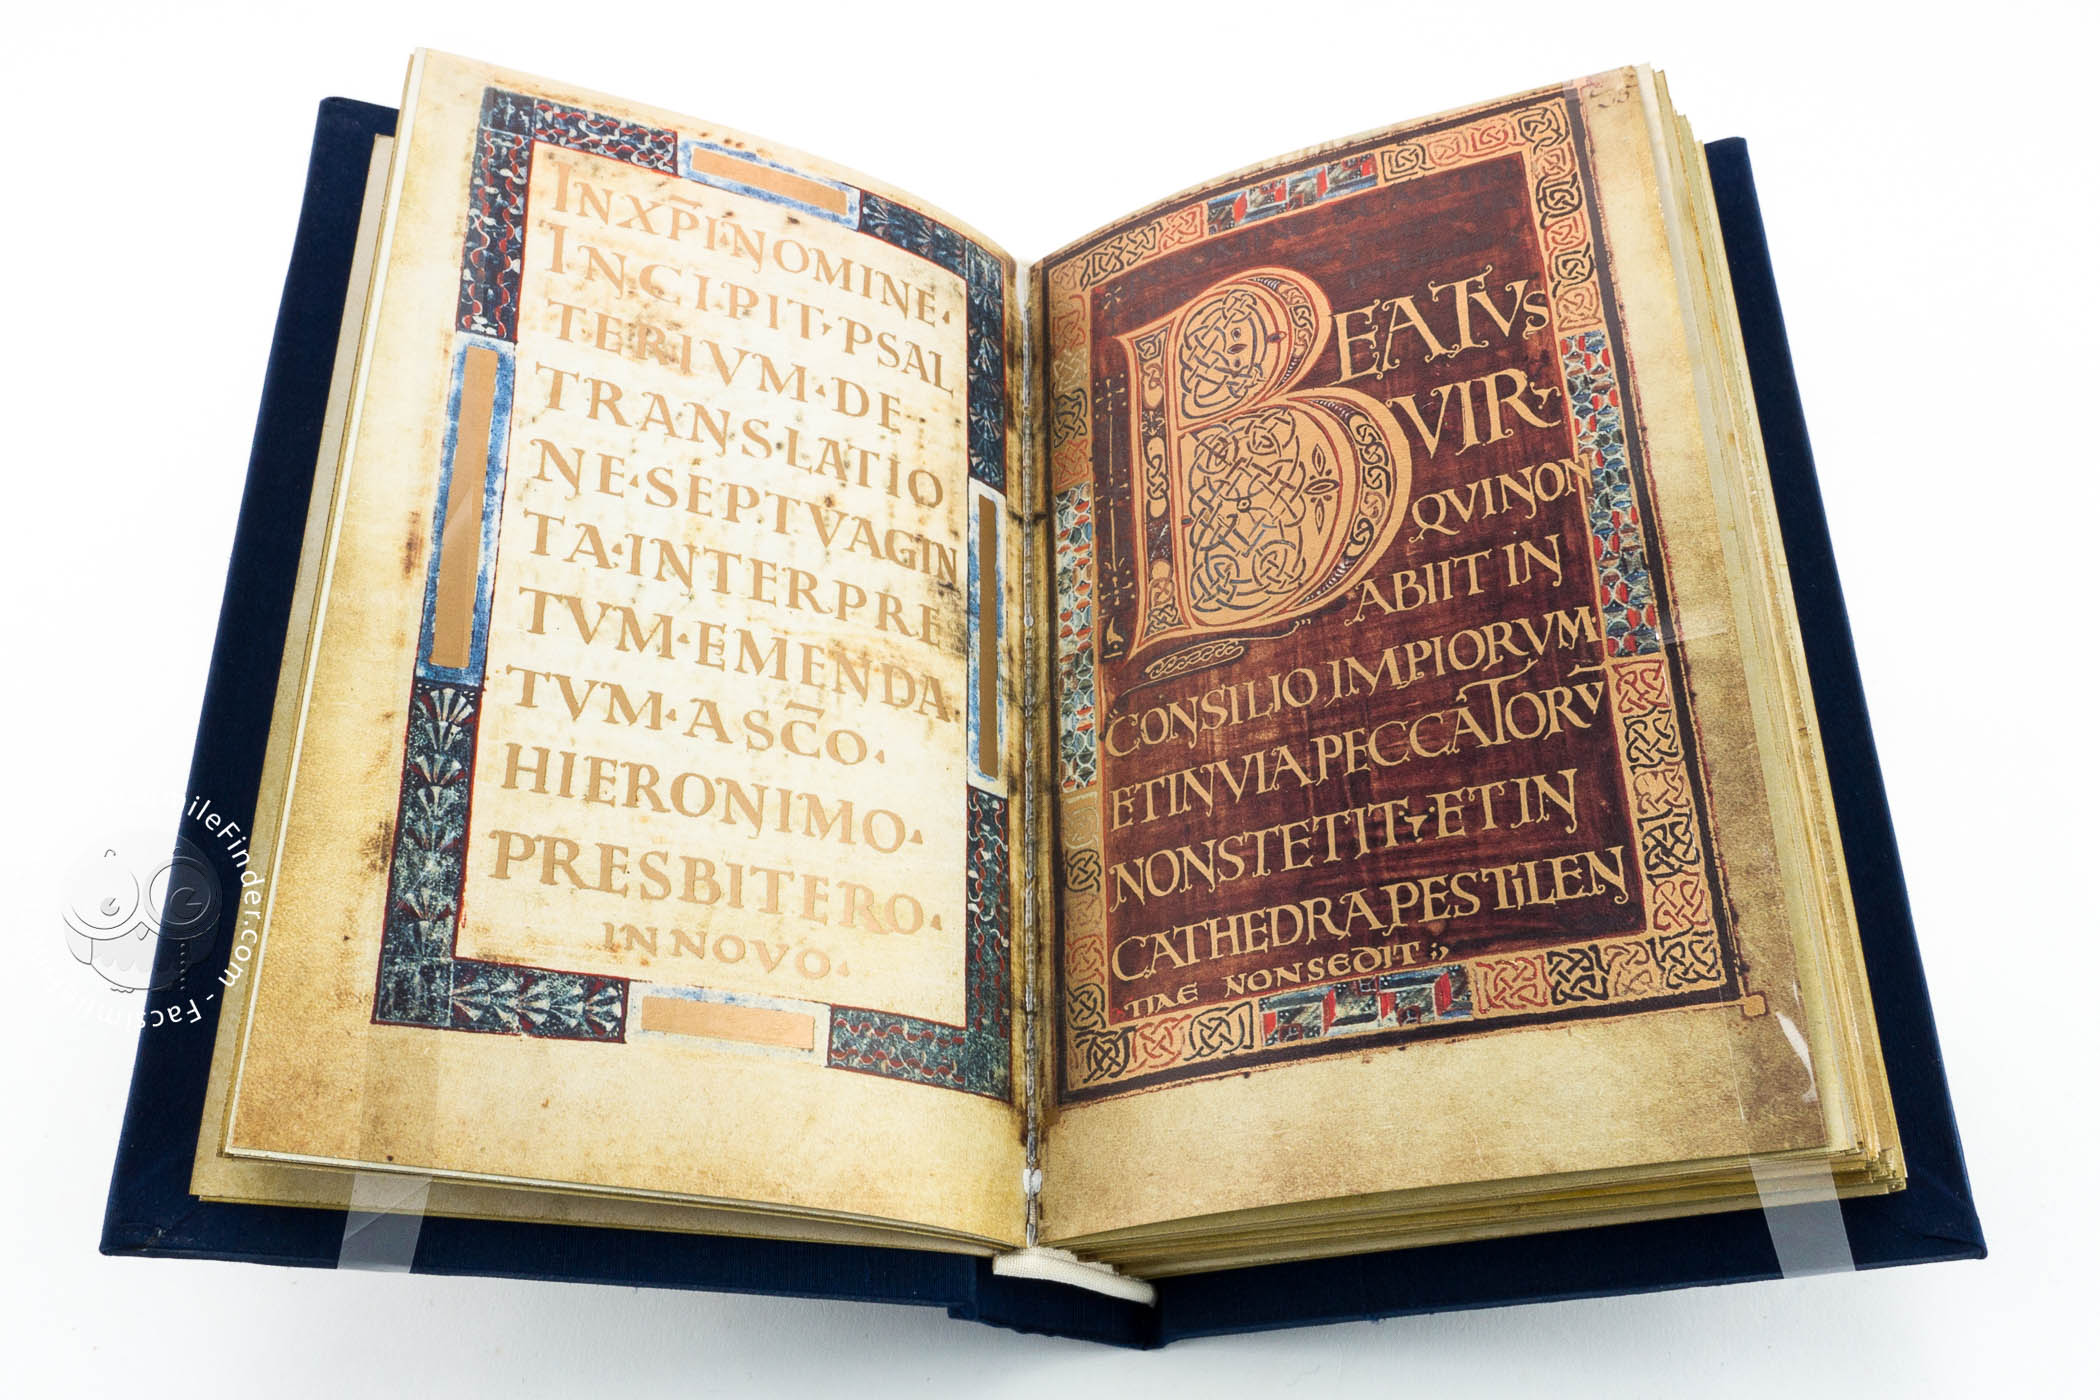 INXP̅I NOMINE·
INCIPIT·PSAL
TERIVM·DE·
TRANSLATIO
NE·SEPTVAGIN
TA·INTERPRE
TVM·EMENDA
TVM·A SC̅O·
HIERONIMO·
PRESBITERO·
IN NOVO·
BEATVS
VIR·
QVI NON
ABIIT IN
CONSILIO IMPIORVM·
ET IN VIA PECCATORV̅
NON STETIT·ET IN
CATHEDRA PESTILEN
TIAE NON SEDIT
FacsimileFinder.com - Facsimile